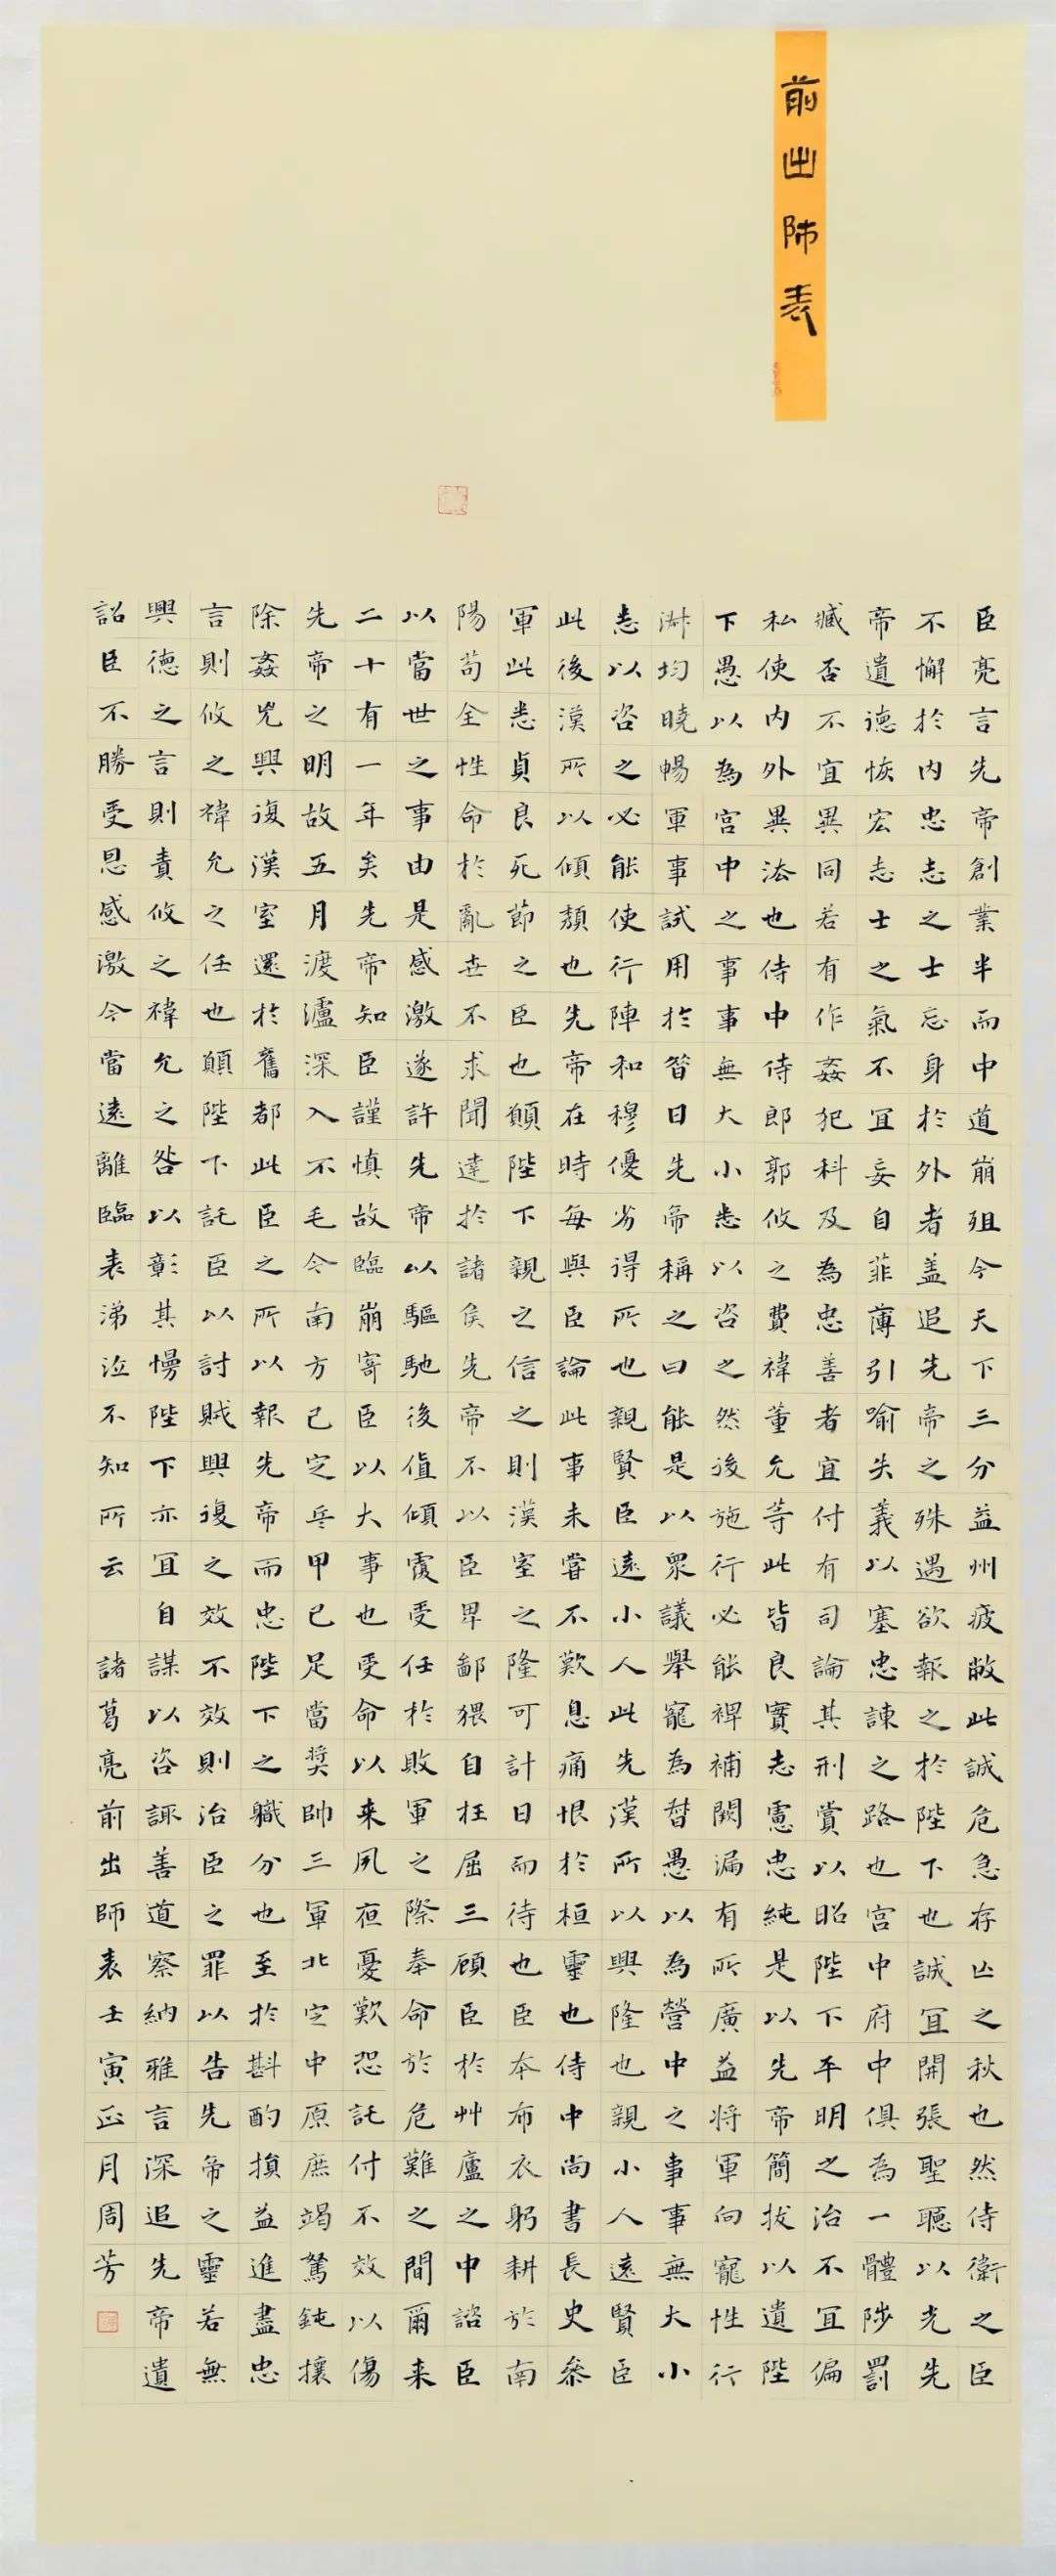 前出師表
臣亮言先帝創業半而中道崩殂今天下三分益州疲敝此誠危急存亡之秋也然侍衛之臣
不懈於內忠志之士忘身於外者盖追先帝之殊遇欲報之於陛下也誠宜開張聖聽以光先
帝遺德恢宏志士之氣不宜妄自菲薄引喻失義以塞忠諫之路也宮中府中俱為一體陟罰
臧否不宜異同若有作姦犯科及為忠善者宜付有司論其刑賞以昭陛下平明之治不宜偏
私使內外異法也侍中侍郎郭攸之費禕董允等此皆良實志慮忠純是以先帝簡拔以遺陛
下愚以為宮中之事事無大小悉以咨之然後施行必能裨補闕漏有所廣益將軍向寵性行
淑均曉暢軍事試用於昔日先帝稱之曰能是以眾議舉寵為督愚以為營中之事事無大小
悉以咨之必能使行陣和穆優劣得所也親賢臣遠小人此先漢所以興隆也親小人遠賢臣
此後漢所以傾頹也先帝在時每與臣論此事未嘗不歎息痛恨於桓靈也侍中尚書長史參
軍此悉貞良死節之臣也願陛下親之信之則漢室之隆可計日而待也臣本布衣躬耕於南
陽苟全性命於亂世不求聞達於諸侯先帝不以臣卑鄙猥自枉屈三顧臣於艸廬之中諮臣
以當世之事由是感激遂許先帝以驅馳後值傾覆受任於敗軍之際奉命於危難之間爾来
二十有一年矣先帝知臣謹慎故臨崩寄臣以大事也受命以来夙夜憂歎恐託付不效以傷
先帝之明故五月渡瀘深入不毛今南方已定兵甲已足當獎帥三軍北定中原庶竭駑鈍攘
除姦兇興復漢室還於舊都此臣之所以報先帝而忠陛下之職分也至於斟酌損益進盡忠
言則攸之禕允之任也願陛下託臣以討賊興復之效不效則治臣之罪以告先帝之靈若無
興德之言則責攸之禕允之咎以彰其慢陛下亦宜自謀以咨諏善道察納雅言深追先帝遺
詔臣不勝受恩感激今當遠離臨表涕泣不知所云 諸葛亮前出師表壬寅正月周芳